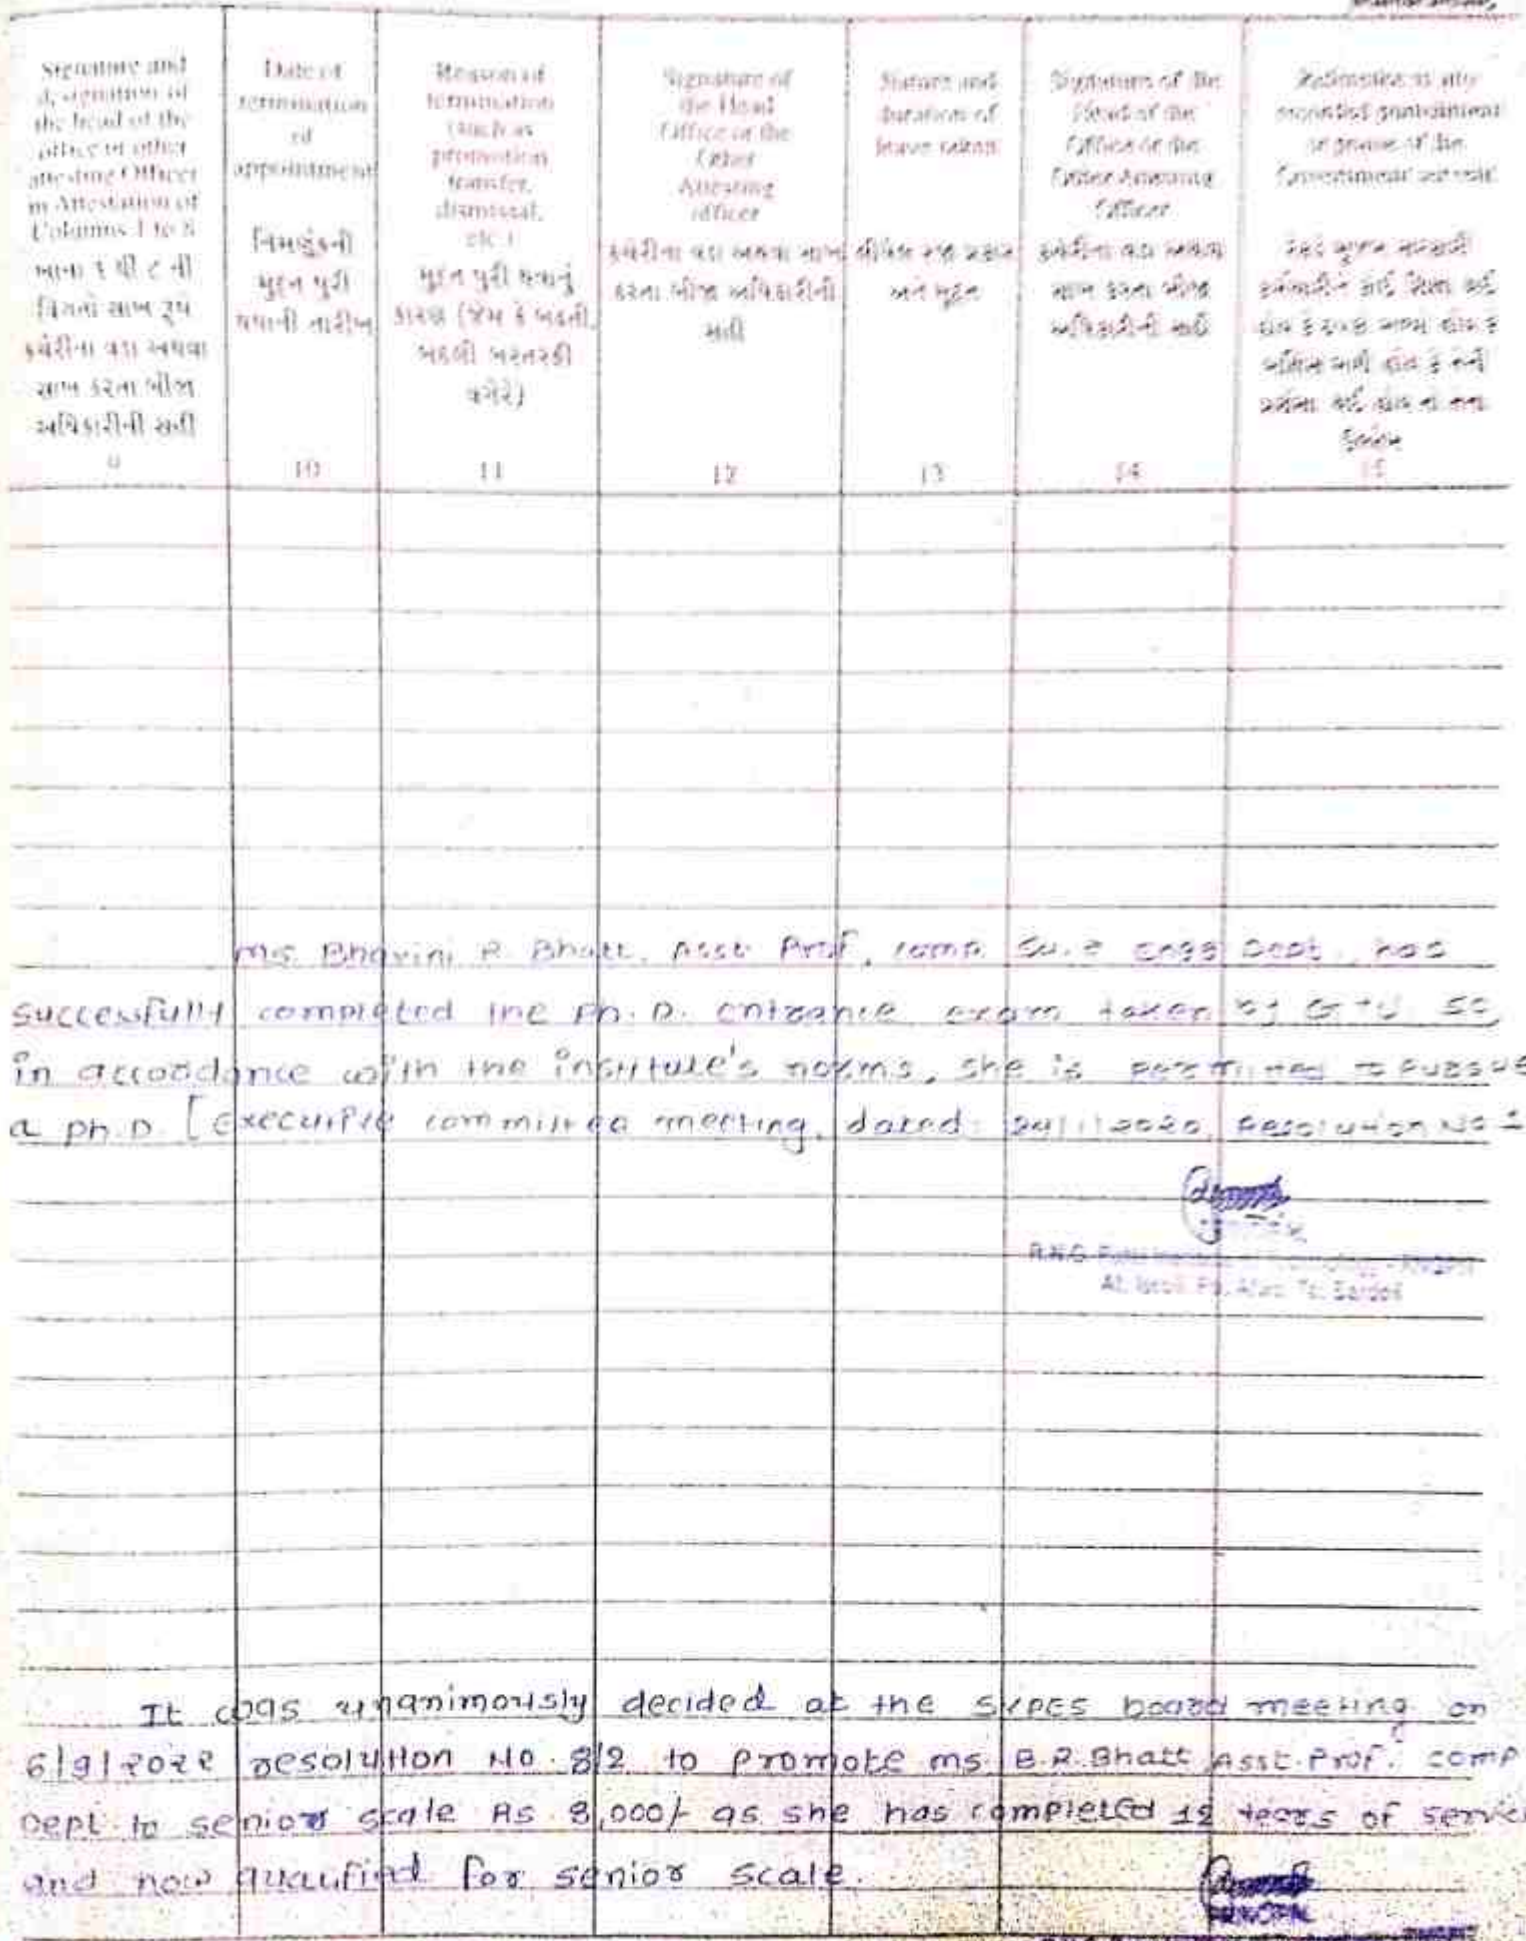 Signature and
designation of
the head of the
office or other
attesting Officer
in Attestation of
Columns 1 to 8
ખાના ૧ થી ૮ ની
વિગતો સાખ રૂપ
કચેરીના વડા અથવા
સાખ કરતા બીજા
અધિકારીની સહી
9
Date of
termination
of
appointment
નિમણુંકની
મુદ્દત પુરી
થયાની તારીખ
10
Reason of
termination
(such as
promotion
transfer,
dismissal,
etc.)
મુદ્દત પુરી થયાનું
કારણ (જેમ કે બઢતી,
બદલી બરતરફી
વગેરે)
11
Signature of
the Head
Office or the
Other
Attesting
officer
કચેરીના વડા અથવા સાખ
કરતા બીજા અધિકારીની
સહી
12
Nature and
duration of
leave taken
લીધેલ રજા પ્રકાર
અને મુદ્દત
13
Signature of the
Head of the
Office or the
Other Attesting
Officer
કચેરીના વડા અથવા
સાખ કરતા બીજા
અધિકારીની સહી
14
15
Ms. Bhavini R. Bhatt, Asst Prof, Comp. Engg Dept. has
successfully completed the Ph.D. entrance exam taken by GTU so,
in accordance with the institute's norms, she is permitted to pursue
a Ph.D. [Executive committee meeting, dated: 24/1/2020, Resolution No
R.N.G. Patel Institute of Technology
At. Isroli Po. Afwa Ta. Bardoli
It was unanimously decided at the SVPES board meeting on
6/9/2022 resolution No. 8/2 to promote ms. B.R.Bhatt Asst.Prof. comp
Dept to senior scale Rs 8,000/- as she has completed 12 years of service
and now qualified for senior scale.
PRINCIPAL